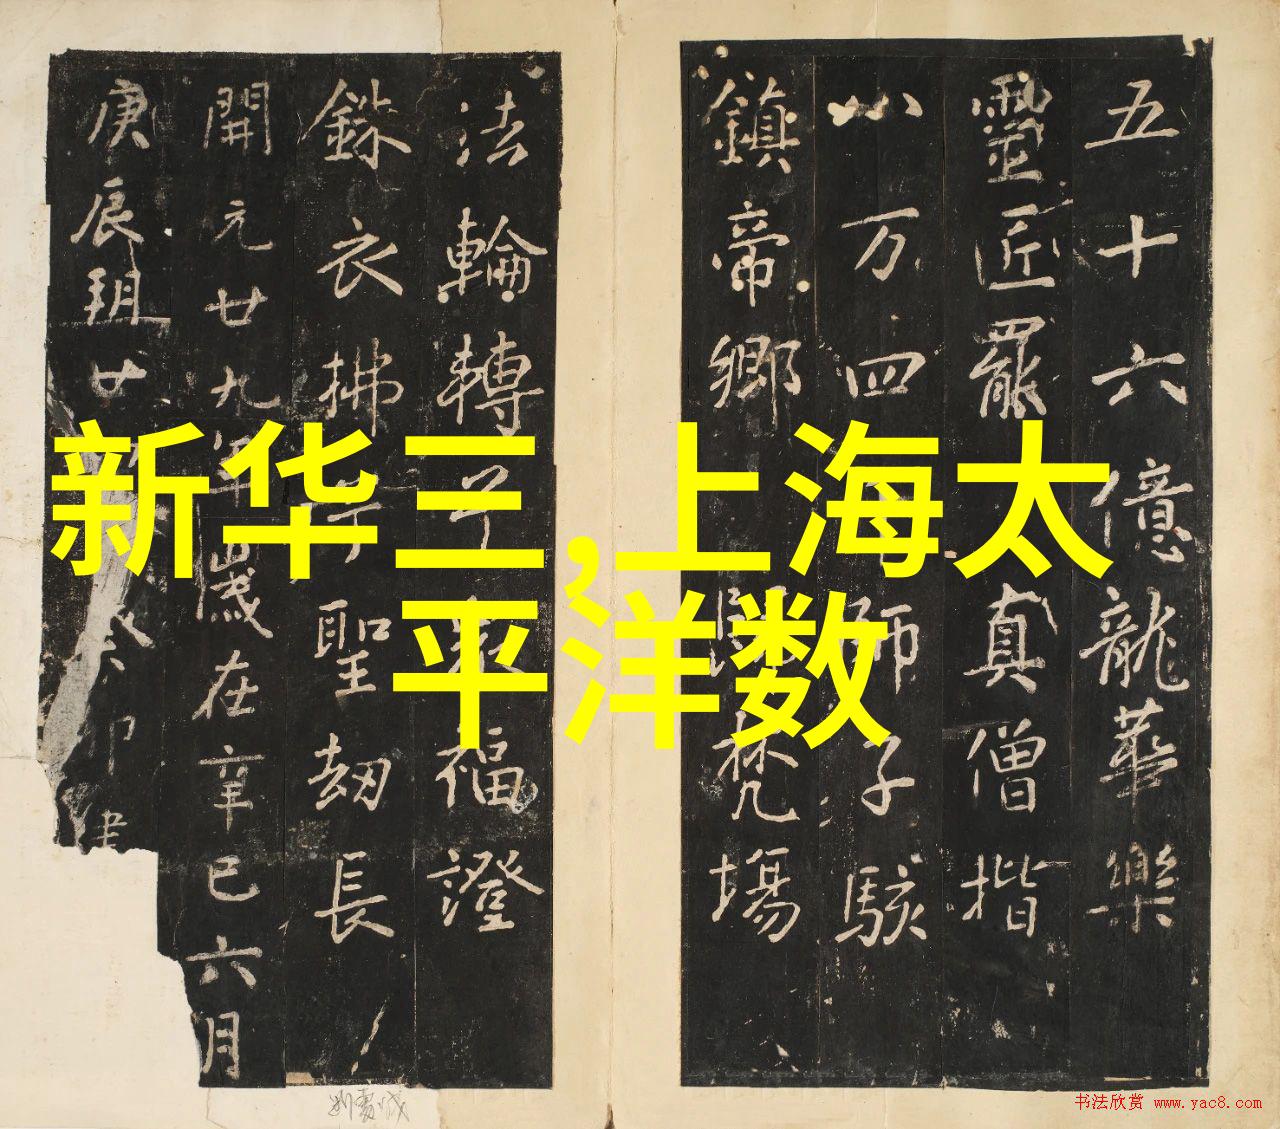 新华三,上海太
平洋数
五十六億龍華樂
靈匠罷真僧揩
八万四師子駭
鎮帝鄉梵場
法輪轉兮福證
銖衣拂兮聖劫長
開元廿九年歲在辛巳六月
庚辰朔廿癸卯建
书法欣赏 www.yac8.com